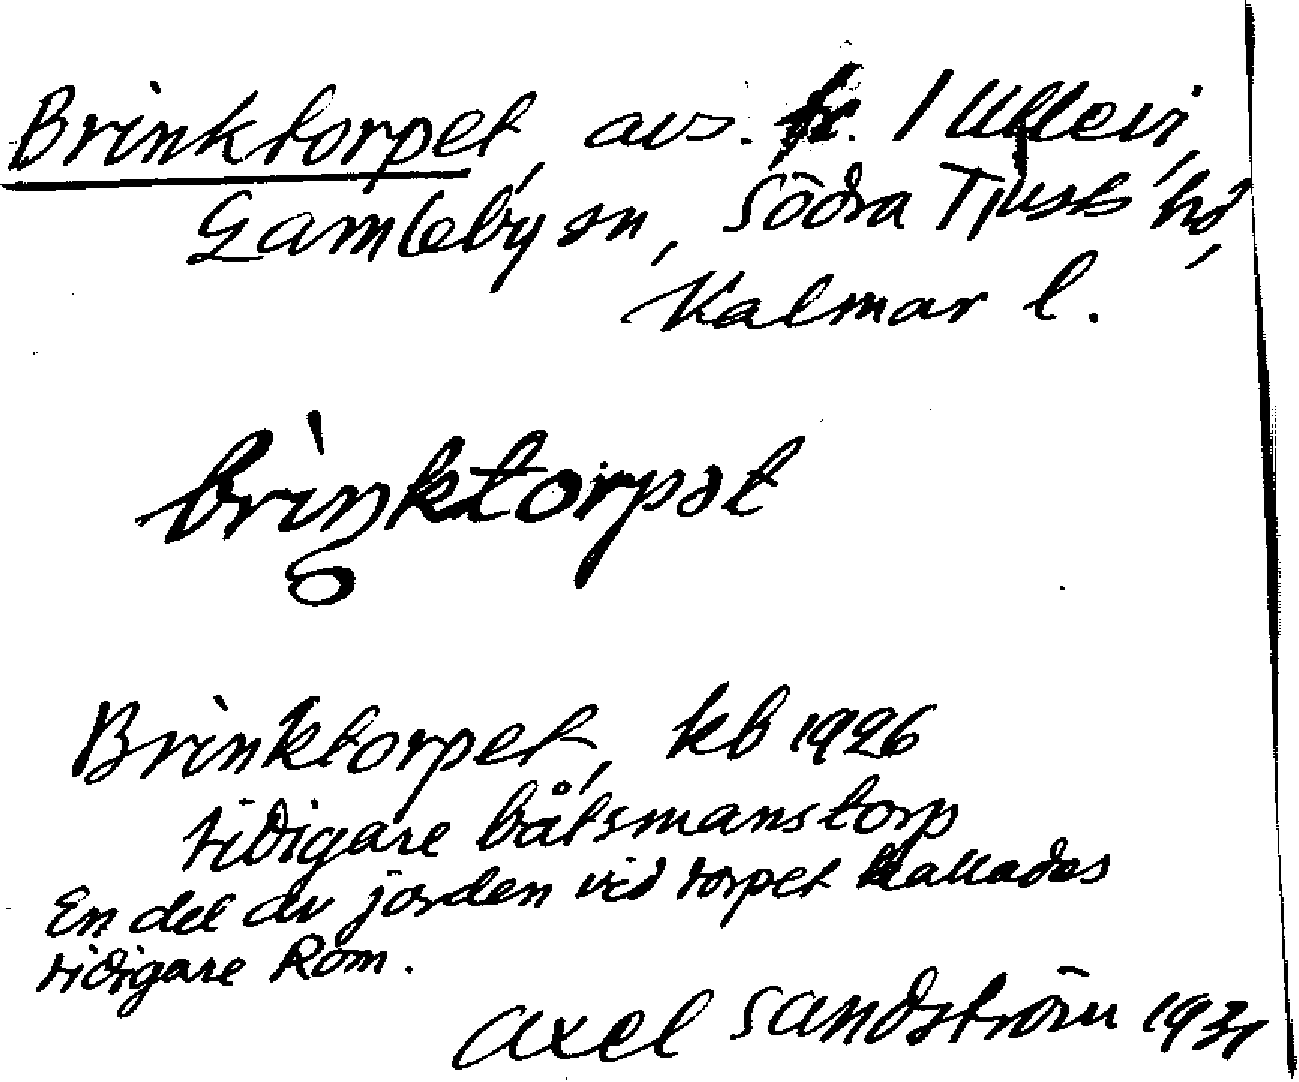 Brinktorpet, avs. fr. 1 Ullevi,
Gamleby sn, Södra Tjusts hd,
Kalmar l.
brìŋktorpət
Brinktorpet, kb 1926
tidigare båtsmanstorp
En del av jorden vid torpet kallades
tidigare Rom.
Axel Sandström 1931